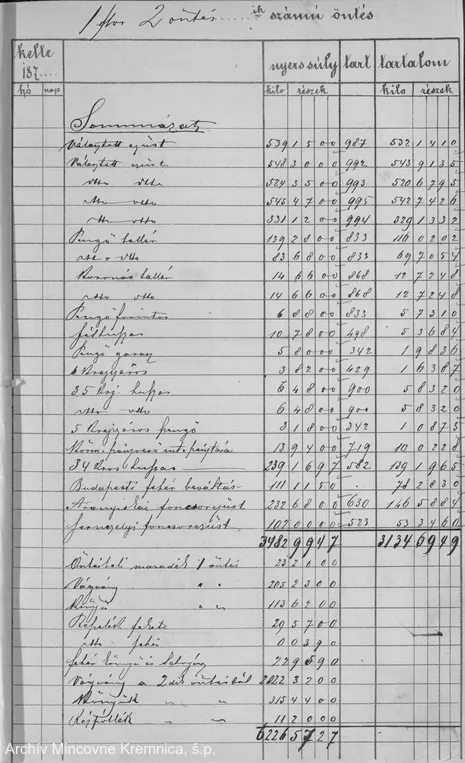 1 /kor 2 öntés......ik számú öntés
kelte
187......
nyers súly tart tartalom
hó nap kilo részek kilo részek
Sommázat
Választott ezüst 539 1500 987 532 1410
Választott ezüst 548 3000 992 543 9135
dtto dtto 524 3500 993 520 6795
dtto 545 4700 995 542 7426
dtto 331 1200 994 329 1332
Pengő tallér 139 2800 833 116 0202
dtto 83 6800 833 69 7054
Koronás tallér 14 6600 868 12 7248
dtto dtto 14 6600 868 12 7248
Pengő forintos 6 8800 833 5 7310
10 7800 498 5 3684
Pengő garas 5 8000 342 1 9836
6 Krajczáros 3 8200 429 1 6387
35 Krj. huszas 6 4800 900 5 8320
dtto dtto 6 4800 900 5 8320
5 Krajczáros pengő 3 1800 342 1 0875
13 9400 719 10 0228
34 Kros huszas 239 1697 582 139 1965
Budapesti fehér beváltás 111 1150 . 78 2830
Aranyidkai foncsorezüst 232 6800 630 146 5884
foncsorezüst 102 0000 523 53 3460
3482 9947 3134 6949
Öntésbeli maradék 1 öntés 23 2000
Vágvány " " 205 2300
" " 113 6200
fekete 29 5700
dtto fehér 0 0390
7 29590
Vágvány a 2dik öntésből 2022 3200
" " 315 4400
" " 11 2000
6226 5727
Archív Mincovne Kremnica, š.p.